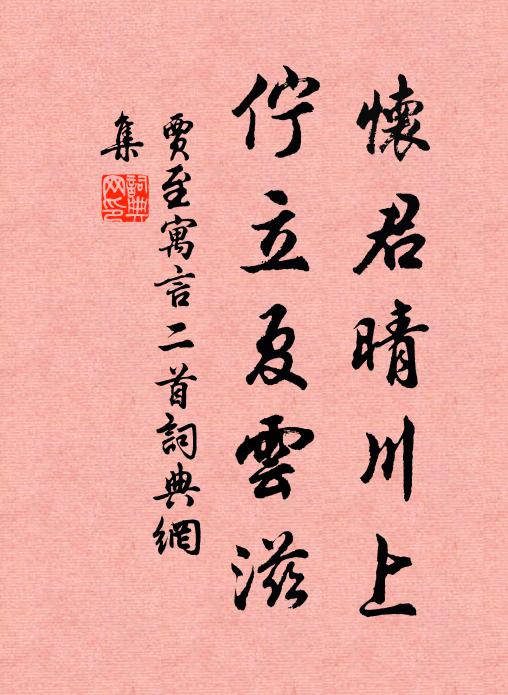 懷君晴川上
佇立夏雲滋
賈至寓言二首詞典網
集
詞典
网印